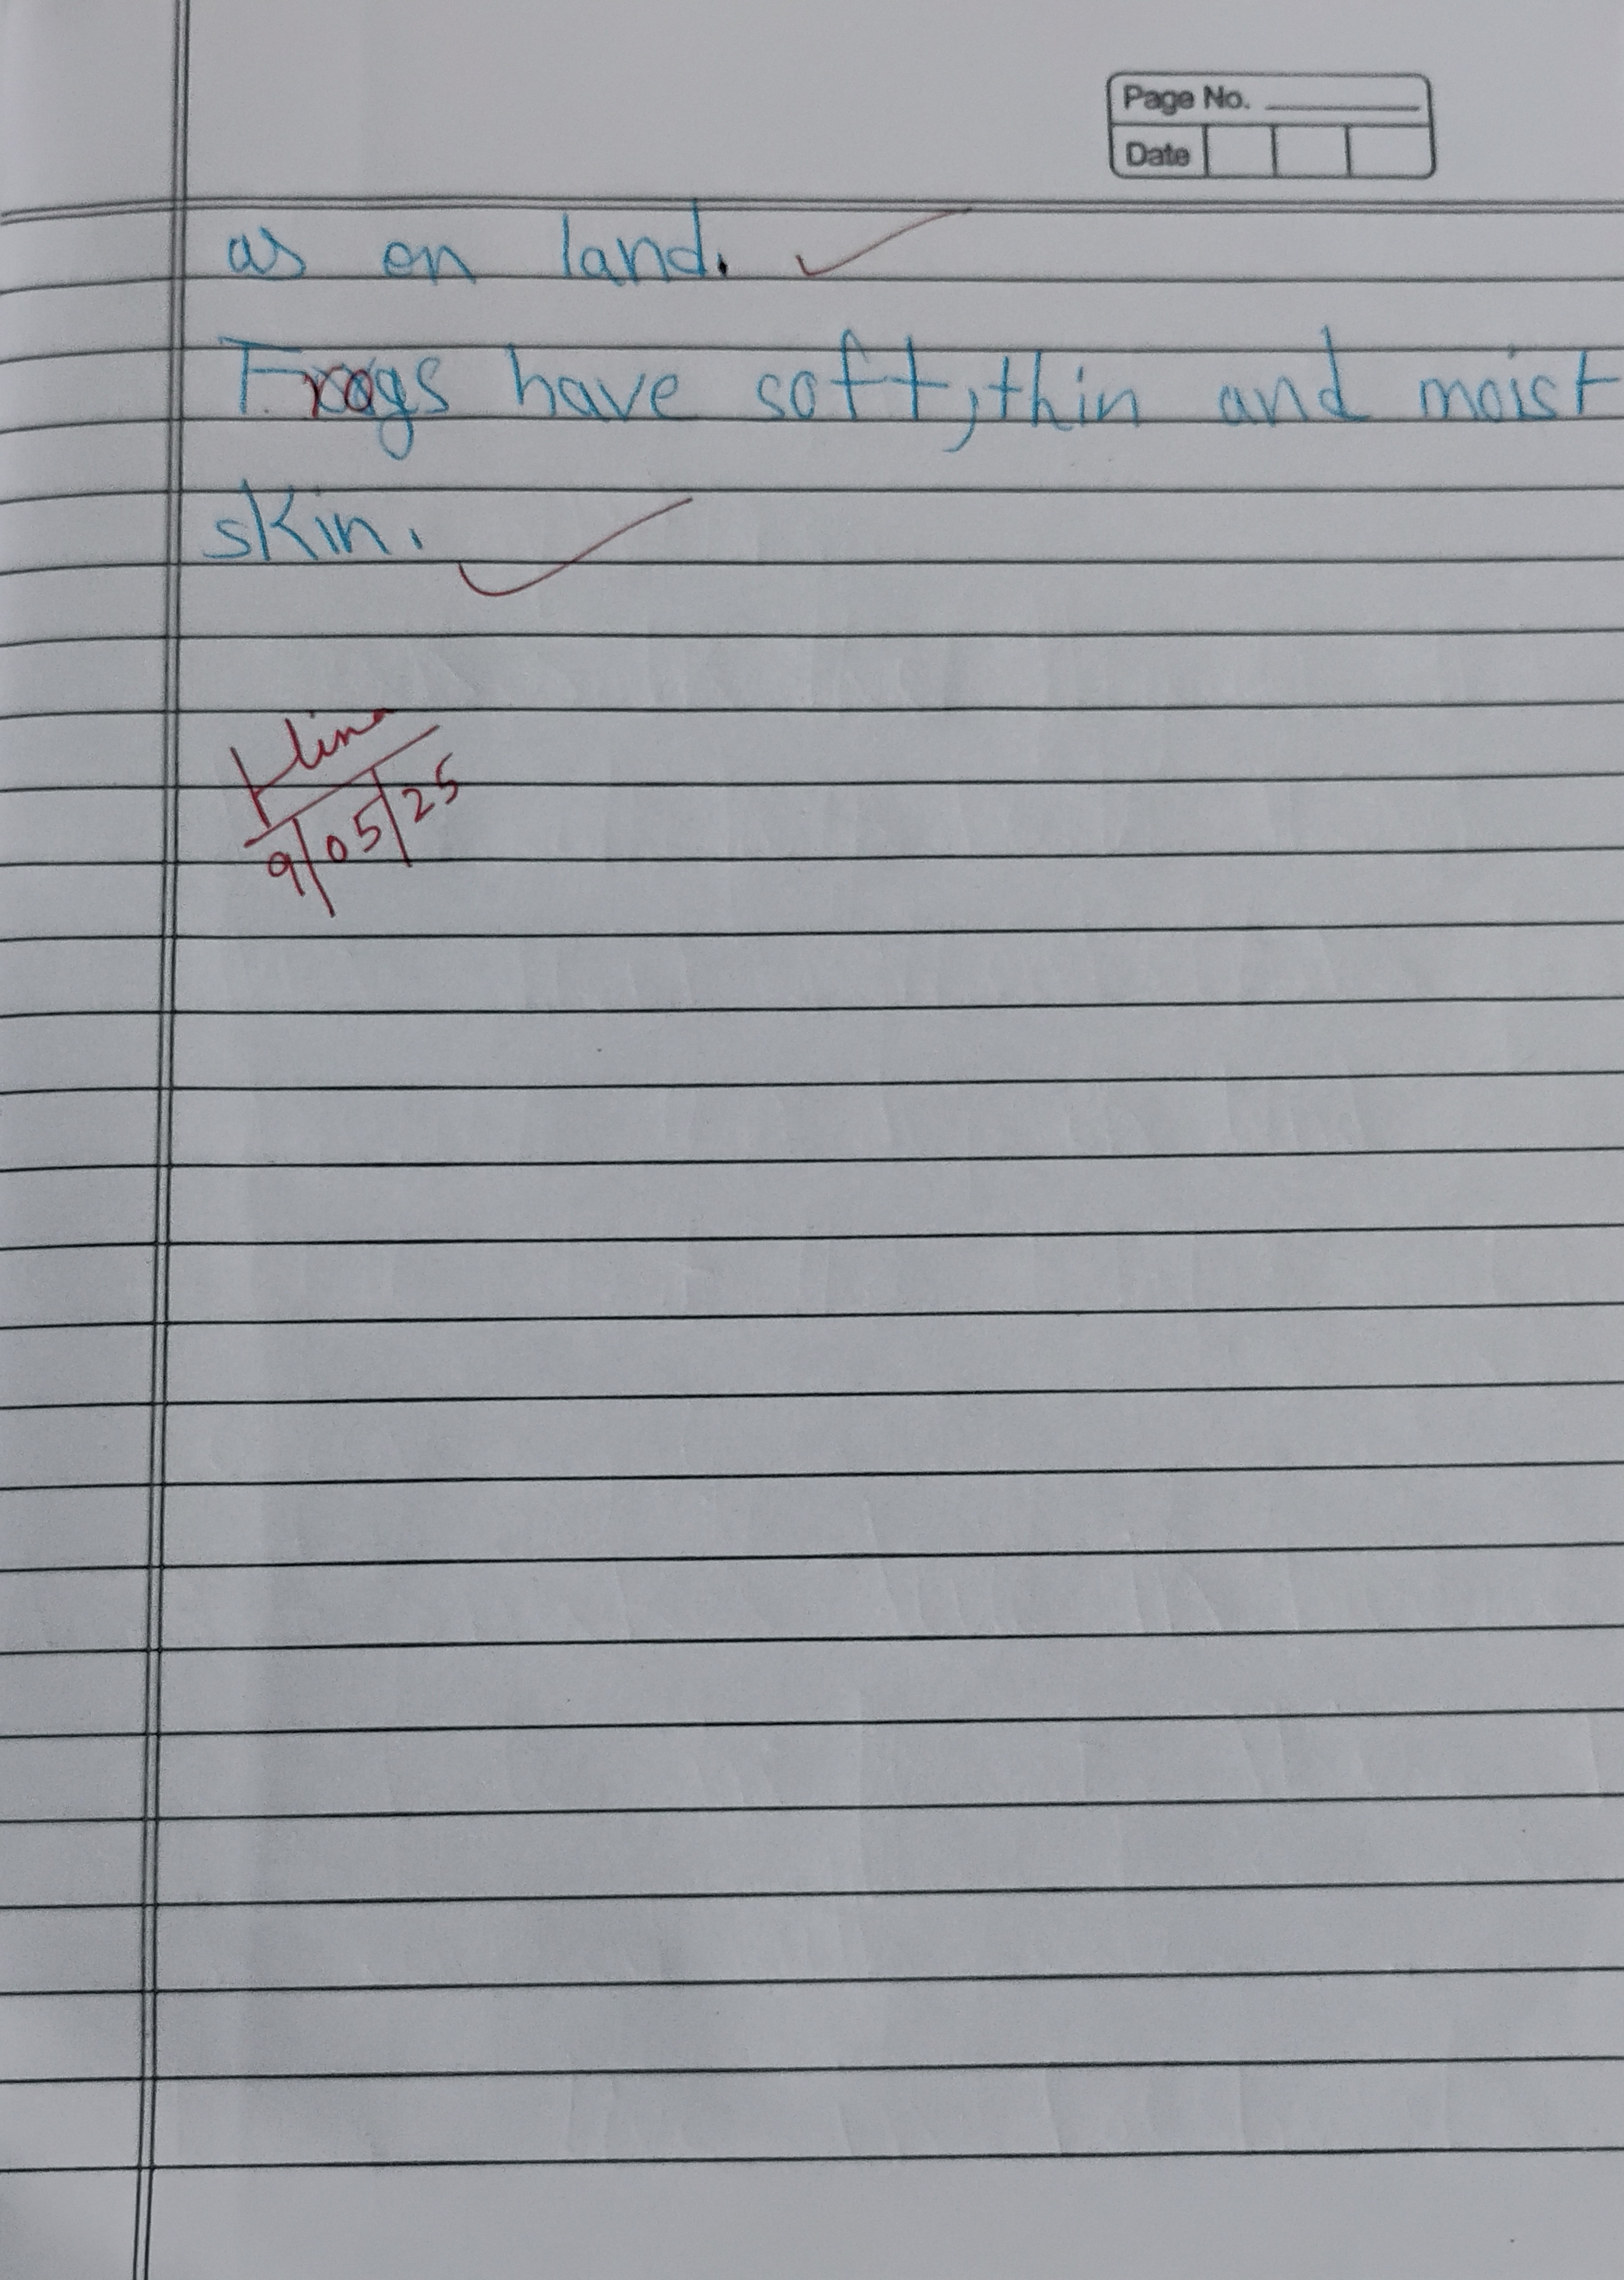 Page No.
Date
as on land.
Frogs have soft, thin and moist
skin.
Hina
9/05/25